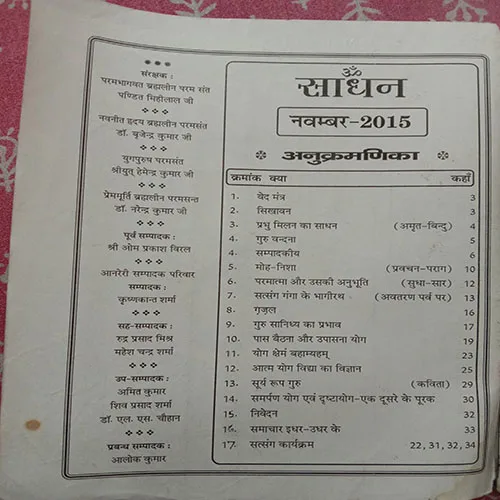 संरक्षक :
परमभागवत ब्रह्मलीन परम संत
पण्डित मिहीलाल जी
नवनीत हृदय ब्रह्मलीन परमसंत
डॉ. बृजेन्द्र कुमार जी
युगपुरुष परमसंत
श्रीयुत् हेमेन्द्र कुमार जी
प्रेममूर्ति ब्रह्मलीन परमसन्त
डॉ. नरेन्द्र कुमार जी
पूर्व सम्पादक :
श्री ओम प्रकाश विरल
आनरेरी सम्पादक परिवार
सम्पादक :
कृष्णकान्त शर्मा
सह-सम्पादक :
रुद्र प्रसाद मिश्र
महेश चन्द्र शर्मा
उप-सम्पादक :
अमित कुमार
शिव प्रसाद शर्मा
डॉ. एल. एस. चौहान
प्रबन्ध सम्पादक :
आलोक कुमार
ॐ
साधन
नवम्बर-2015
अनुक्रमणिका
क्रमांक क्या कहाँ
1. वेद मंत्र 3
2. सिखावन 3
3. प्रभु मिलन का साधन (अमृत-बिन्दु) 4
4. गुरु वन्दना 5
4. सम्पादकीय 6
5. मोह-निशा (प्रवचन-पराग) 10
6. परमात्मा और उसकी अनुभूति (सुधा-सार) 12
7. सत्संग गंगा के भागीरथ (अवतरण पर्व पर) 13
8. ग़ज़ल 16
9. गुरु सानिध्य का प्रभाव 17
10. पास बैठना और उपासना योग 19
11. योग क्षेमं बहाम्यहम् 23
12. आत्म योग विद्या का विज्ञान 25
13. सूर्य रूप गुरु (कविता) 29
14. समर्पण योग एवं दृष्टायोग-एक दूसरे के पूरक 30
15. निवेदन 32
16. समाचार इधर-उधर के 33
17. सत्संग कार्यक्रम 22, 31, 32, 34